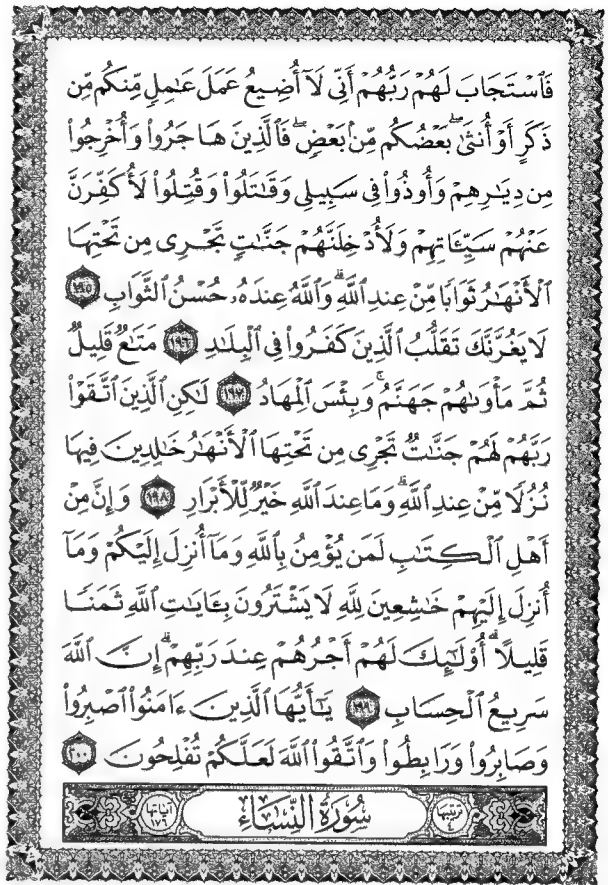 فَٱسْتَجَابَ لَهُمْ رَبُّهُمْ أَنِّى لَآ أُضِيعُ عَمَلَ عَـٰمِلٍ مِّنكُم مِّن
ذَكَرٍ أَوْ أُنثَىٰ ۖ بَعْضُكُم مِّنۢ بَعْضٍ ۖ فَٱلَّذِينَ هَاجَرُوا۟ وَأُخْرِجُوا۟
مِن دِيَـٰرِهِمْ وَأُوذُوا۟ فِى سَبِيلِى وَقَـٰتَلُوا۟ وَقُتِلُوا۟ لَأُكَفِّرَنَّ
عَنْهُمْ سَيِّـَٔاتِهِمْ وَلَأُدْخِلَنَّهُمْ جَنَّـٰتٍ تَجْرِى مِن تَحْتِهَا
ٱلْأَنْهَـٰرُ ثَوَابًا مِّنْ عِندِ ٱللَّهِ ۗ وَٱللَّهُ عِندَهُۥ حُسْنُ ٱلثَّوَابِ ١٩٥
لَا يَغُرَّنَّكَ تَقَلُّبُ ٱلَّذِينَ كَفَرُوا۟ فِى ٱلْبِلَـٰدِ ١٩٦ مَتَـٰعٌ قَلِيلٌ
ثُمَّ مَأْوَىٰهُمْ جَهَنَّمُ ۚ وَبِئْسَ ٱلْمِهَادُ ١٩٧ لَـٰكِنِ ٱلَّذِينَ ٱتَّقَوْا۟
رَبَّهُمْ لَهُمْ جَنَّـٰتٌ تَجْرِى مِن تَحْتِهَا ٱلْأَنْهَـٰرُ خَـٰلِدِينَ فِيهَا
نُزُلًا مِّنْ عِندِ ٱللَّهِ ۗ وَمَا عِندَ ٱللَّهِ خَيْرٌ لِّلْأَبْرَارِ ١٩٨ وَإِنَّ مِنْ
أَهْلِ ٱلْكِتَـٰبِ لَمَن يُؤْمِنُ بِٱللَّهِ وَمَآ أُنزِلَ إِلَيْكُمْ وَمَآ
أُنزِلَ إِلَيْهِمْ خَـٰشِعِينَ لِلَّهِ لَا يَشْتَرُونَ بِـَٔايَـٰتِ ٱللَّهِ ثَمَنًا
قَلِيلًا ۗ أُو۟لَـٰٓئِكَ لَهُمْ أَجْرُهُمْ عِندَ رَبِّهِمْ ۗ إِنَّ ٱللَّهَ
سَرِيعُ ٱلْحِسَابِ ١٩٩ يَـٰٓأَيُّهَا ٱلَّذِينَ ءَامَنُوا۟ ٱصْبِرُوا۟
وَصَابِرُوا۟ وَرَابِطُوا۟ وَٱتَّقُوا۟ ٱللَّهَ لَعَلَّكُمْ تُفْلِحُونَ ٢٠٠
ترتيبها ٤ سُورَةُ النِّسَاءِ آياتها ١٧٦